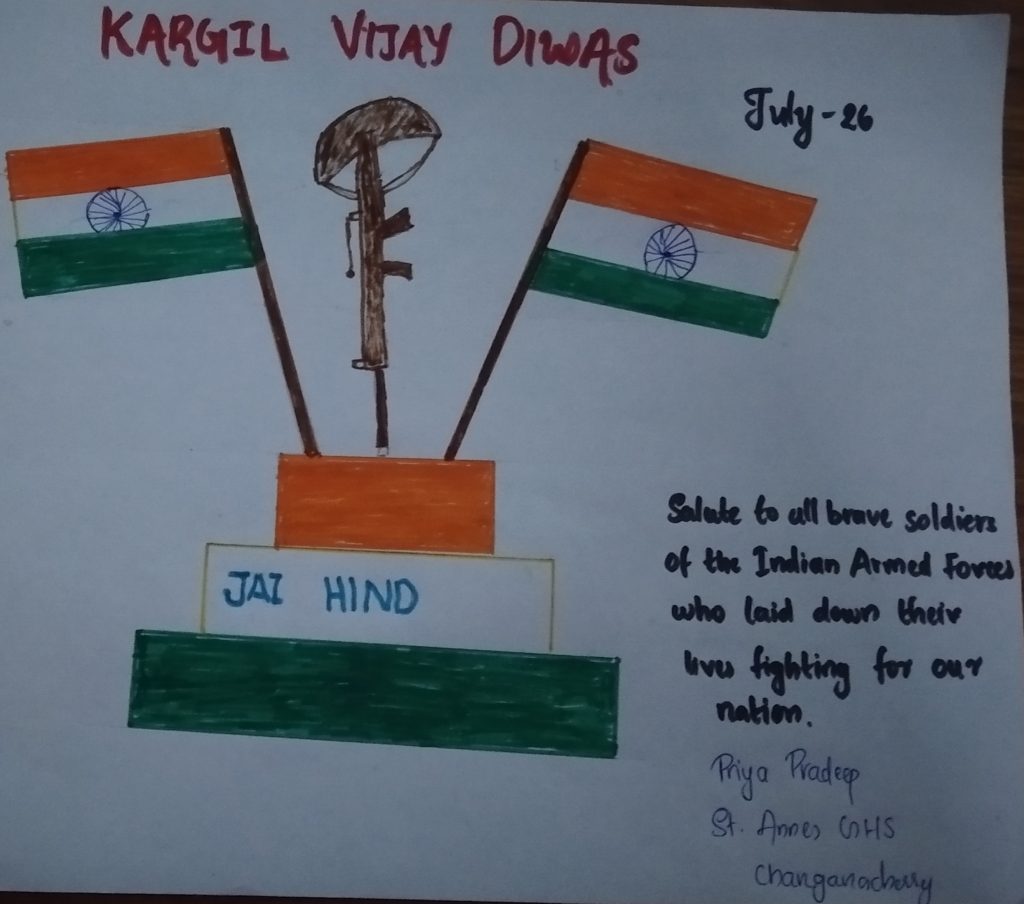 KARGIL VIJAY DIWAS
July - 26
JAI HIND
Salute to all brave soldiers
of the Indian Armed Forces
who laid down their
lives fighting for our
nation.
Priya Pradeep
St. Annes GHS
Changanacherry